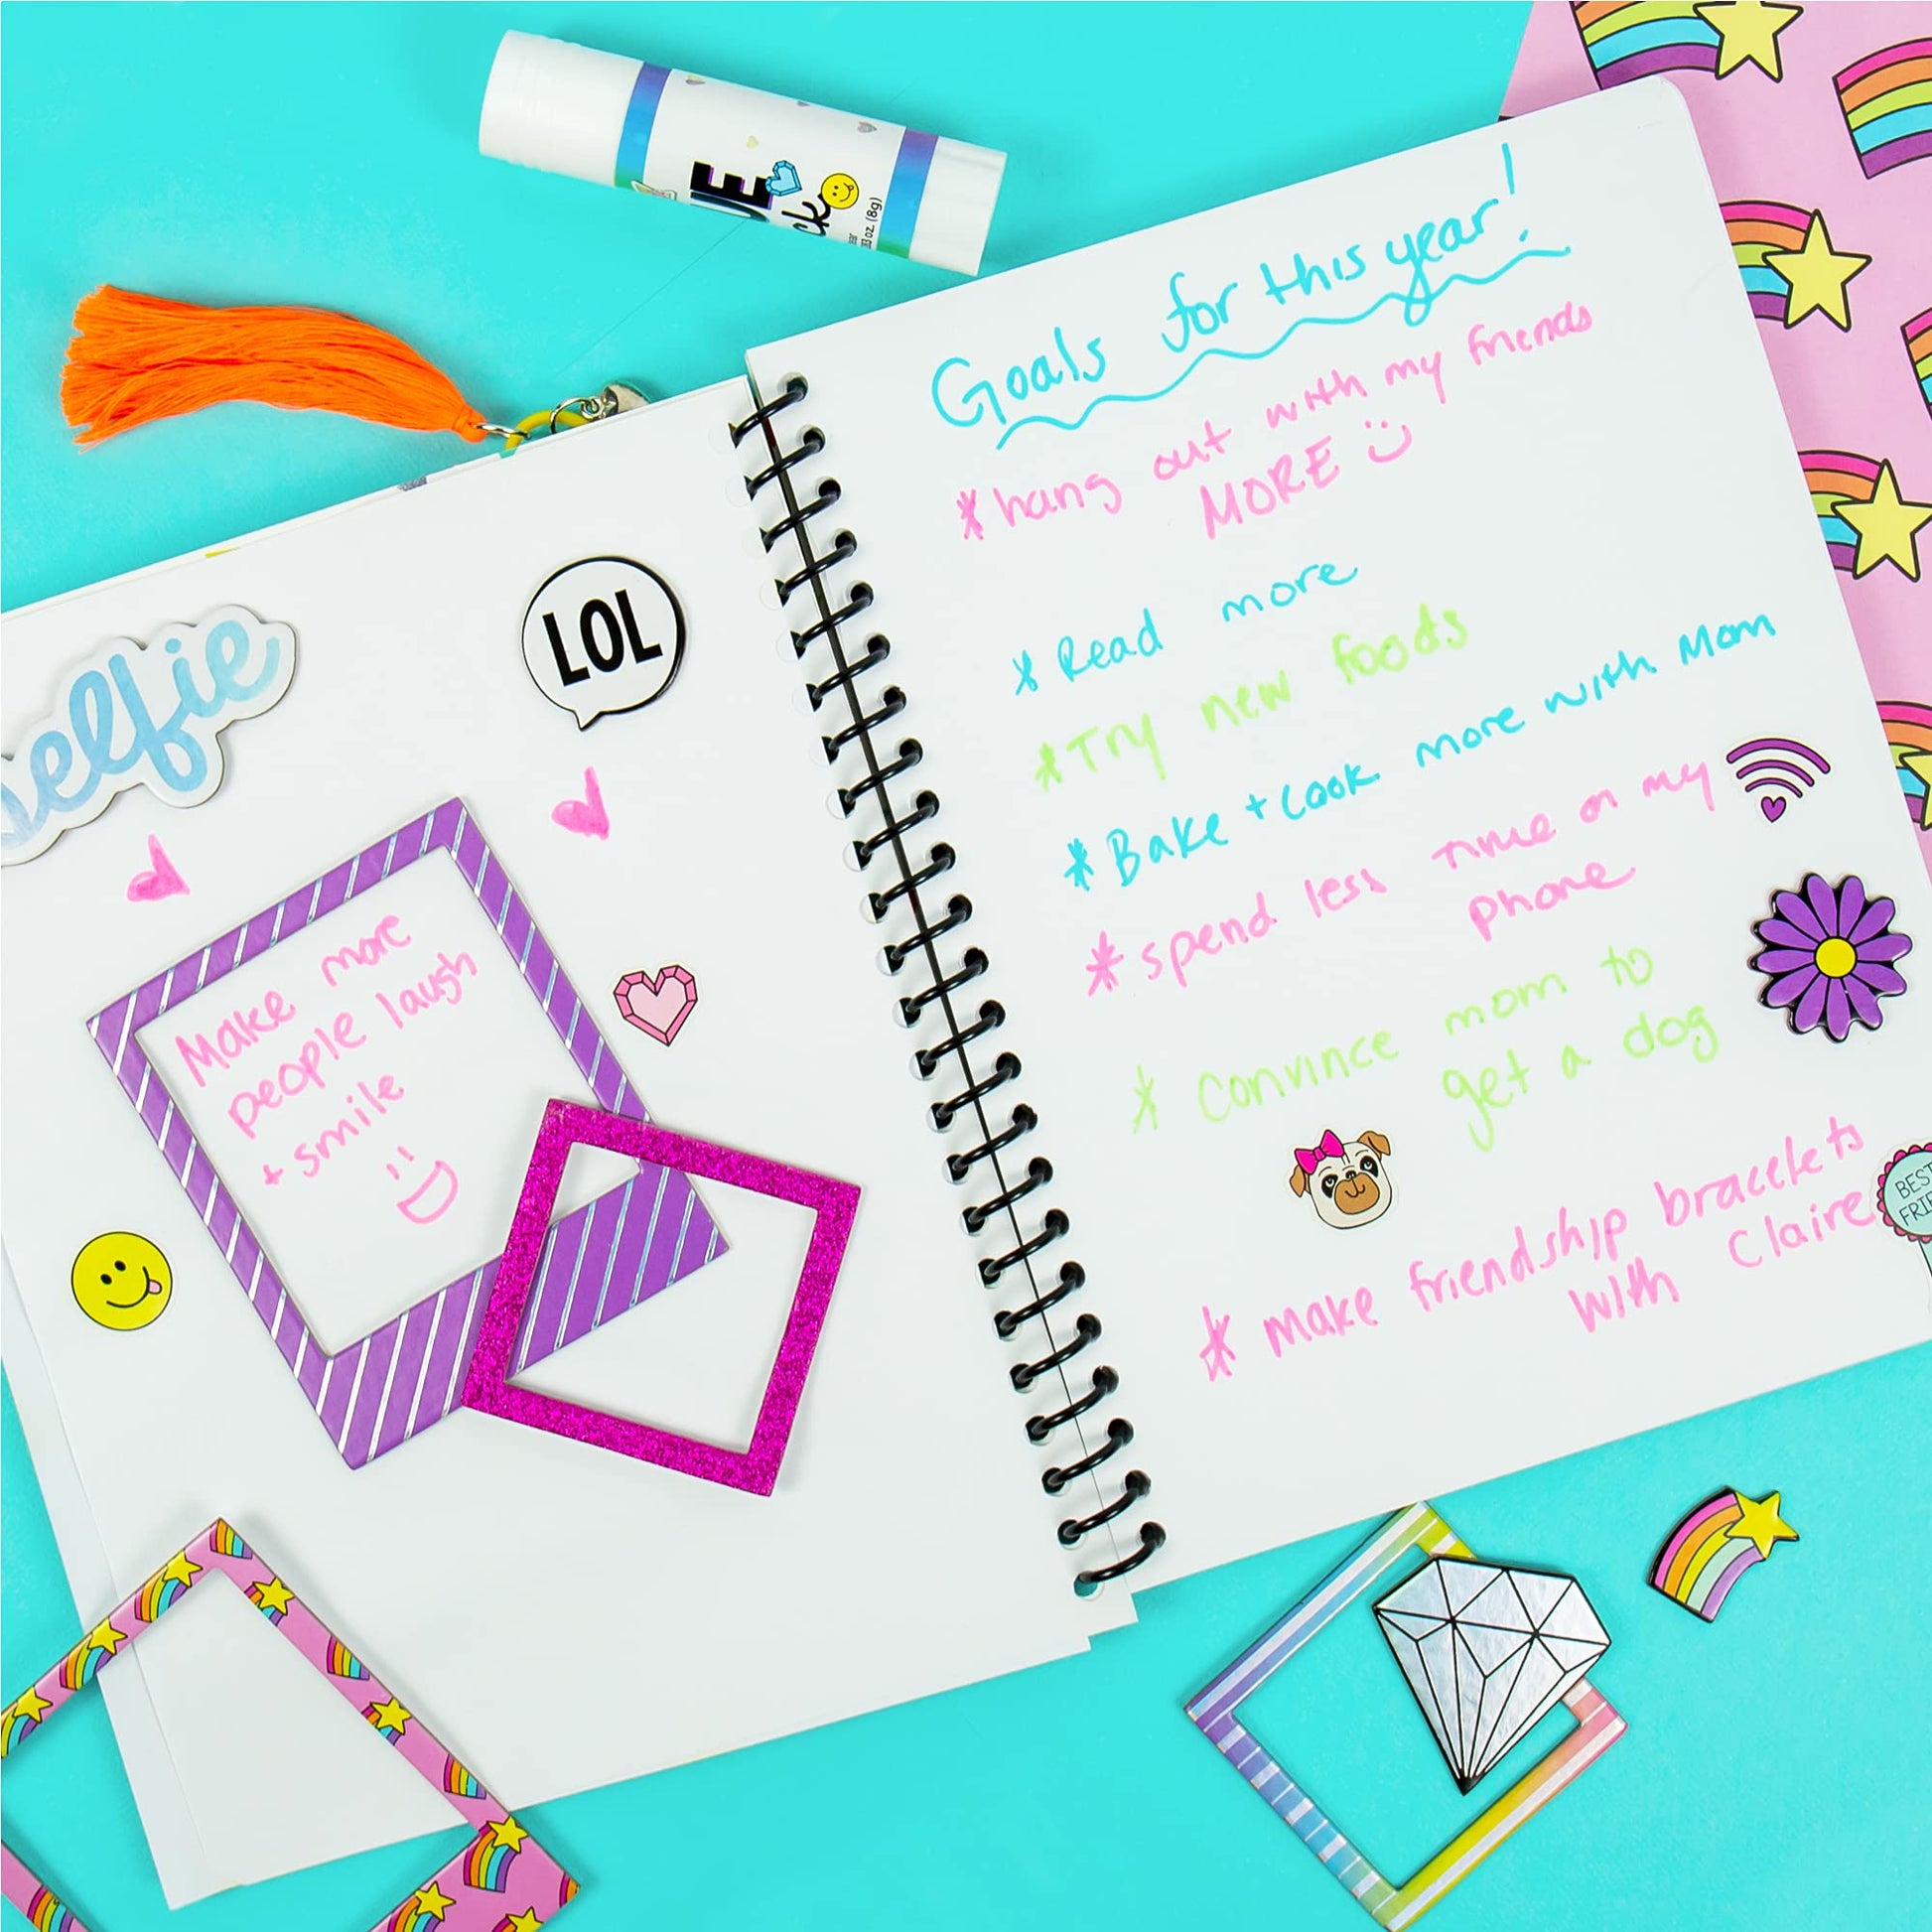 (8g)
selfie
LOL
Make more
people laugh
+ smile
Goals for this year!
* hang out with my friends
MORE
* Read more
* Try new foods
* Bake + Cook more with Mom
* spend less time on my
phone
* Convince mom to
get a dog
* make friendship bracelets
with Claire
BEST